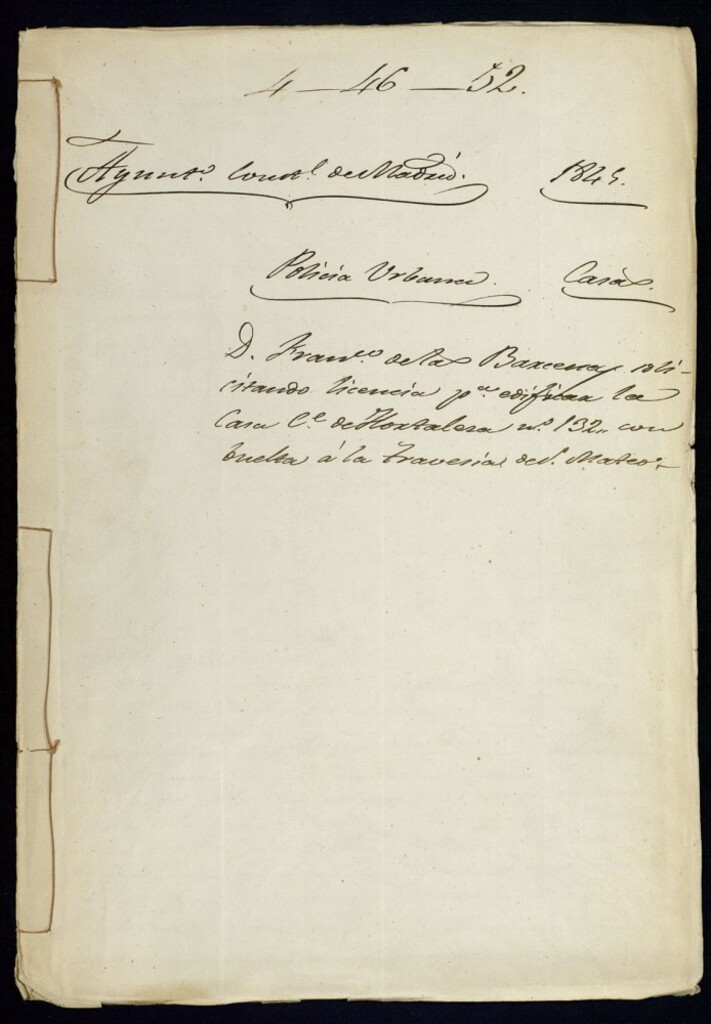 4-46-52.
Ayunto. Constl. de Madrid. 1845.
Policia Urbana. Casas.
D. Franco. de la Barcena, soli-
citando licencia pa. edificar la
Casa Ce. de Hortaleza no. 132,, con
buelta á la travesia de S. Mateo.